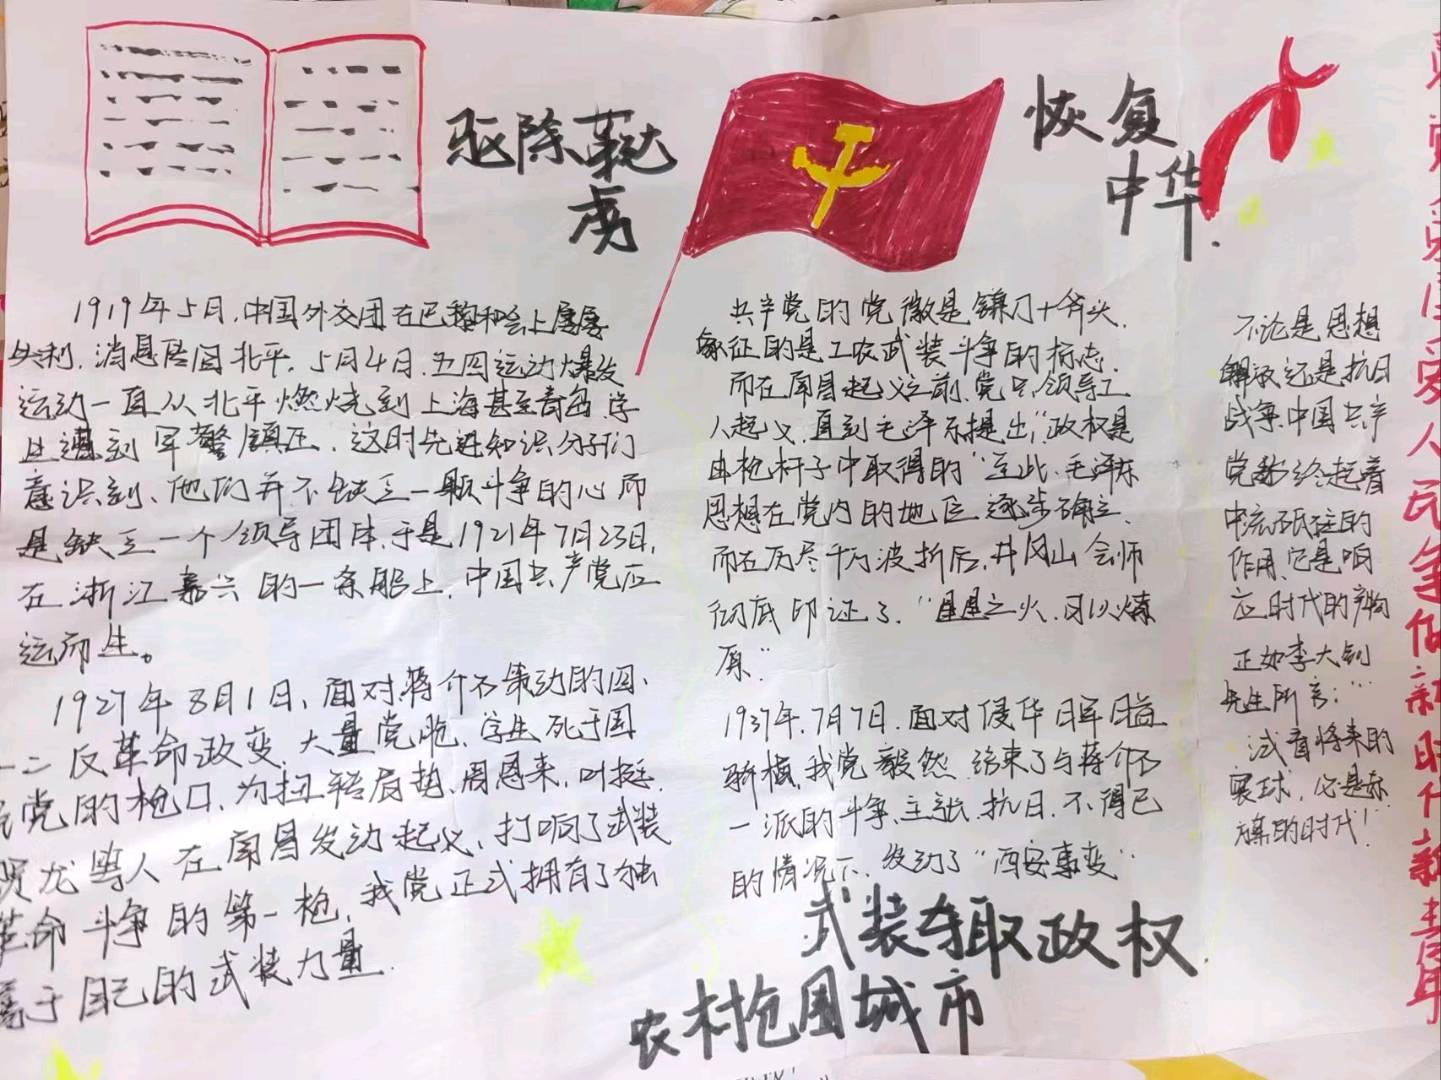 驱除鞑
虏
恢复
中华.
1919年5月,中国外交团在巴黎和会上屡屡
失利,消息传回北平,5月4日,五四运动爆发
运动一直从北平燃烧到上海甚至青岛,学
生遭到军警镇压,这时先进知识分子们
意识到、他们并不缺乏一颗斗争的心而
是缺乏一个领导团体,于是1921年7月23日,
在浙江嘉兴的一条船上,中国共产党应
运而生。
1927年8月1日,面对蒋介石策动的四、
一二反革命政变,大量党胞,学生死于国
民党的枪口,为扭转局势,周恩来,叶挺,
贺龙等人在南昌发动起义,打响了武装
革命斗争的第一枪,我党正式拥有了独
属于自己的武装力量.
共产党的党徽是镰刀十斧头,
象征的是工农武装斗争的标志.
而在南昌起义之前,党只领导工
人起义,直到毛泽东提出,"政权是
由枪杆子中取得的"至此,毛泽东
思想在党内的地位逐步确立.
而在历尽千万波折后,井冈山会师
彻底印证了"星星之火,可以燎
原"
1937年,7月7日,面对侵华日军日益
骄横,我党毅然结束了与蒋介石
一派的斗争,主张,抗日,不得已
的情况下,发动了"西安事变"
不论是思想
解放还是抗日
战争,中国共产
党都始终起着
中流砥柱的
作用,它是响
应时代的产物
正如李大钊
先生所言:"
试看将来的
寰球,必是赤
旗的时代!
武装夺取政权
农村包围城市
党爱国爱人民争做新时代新青年